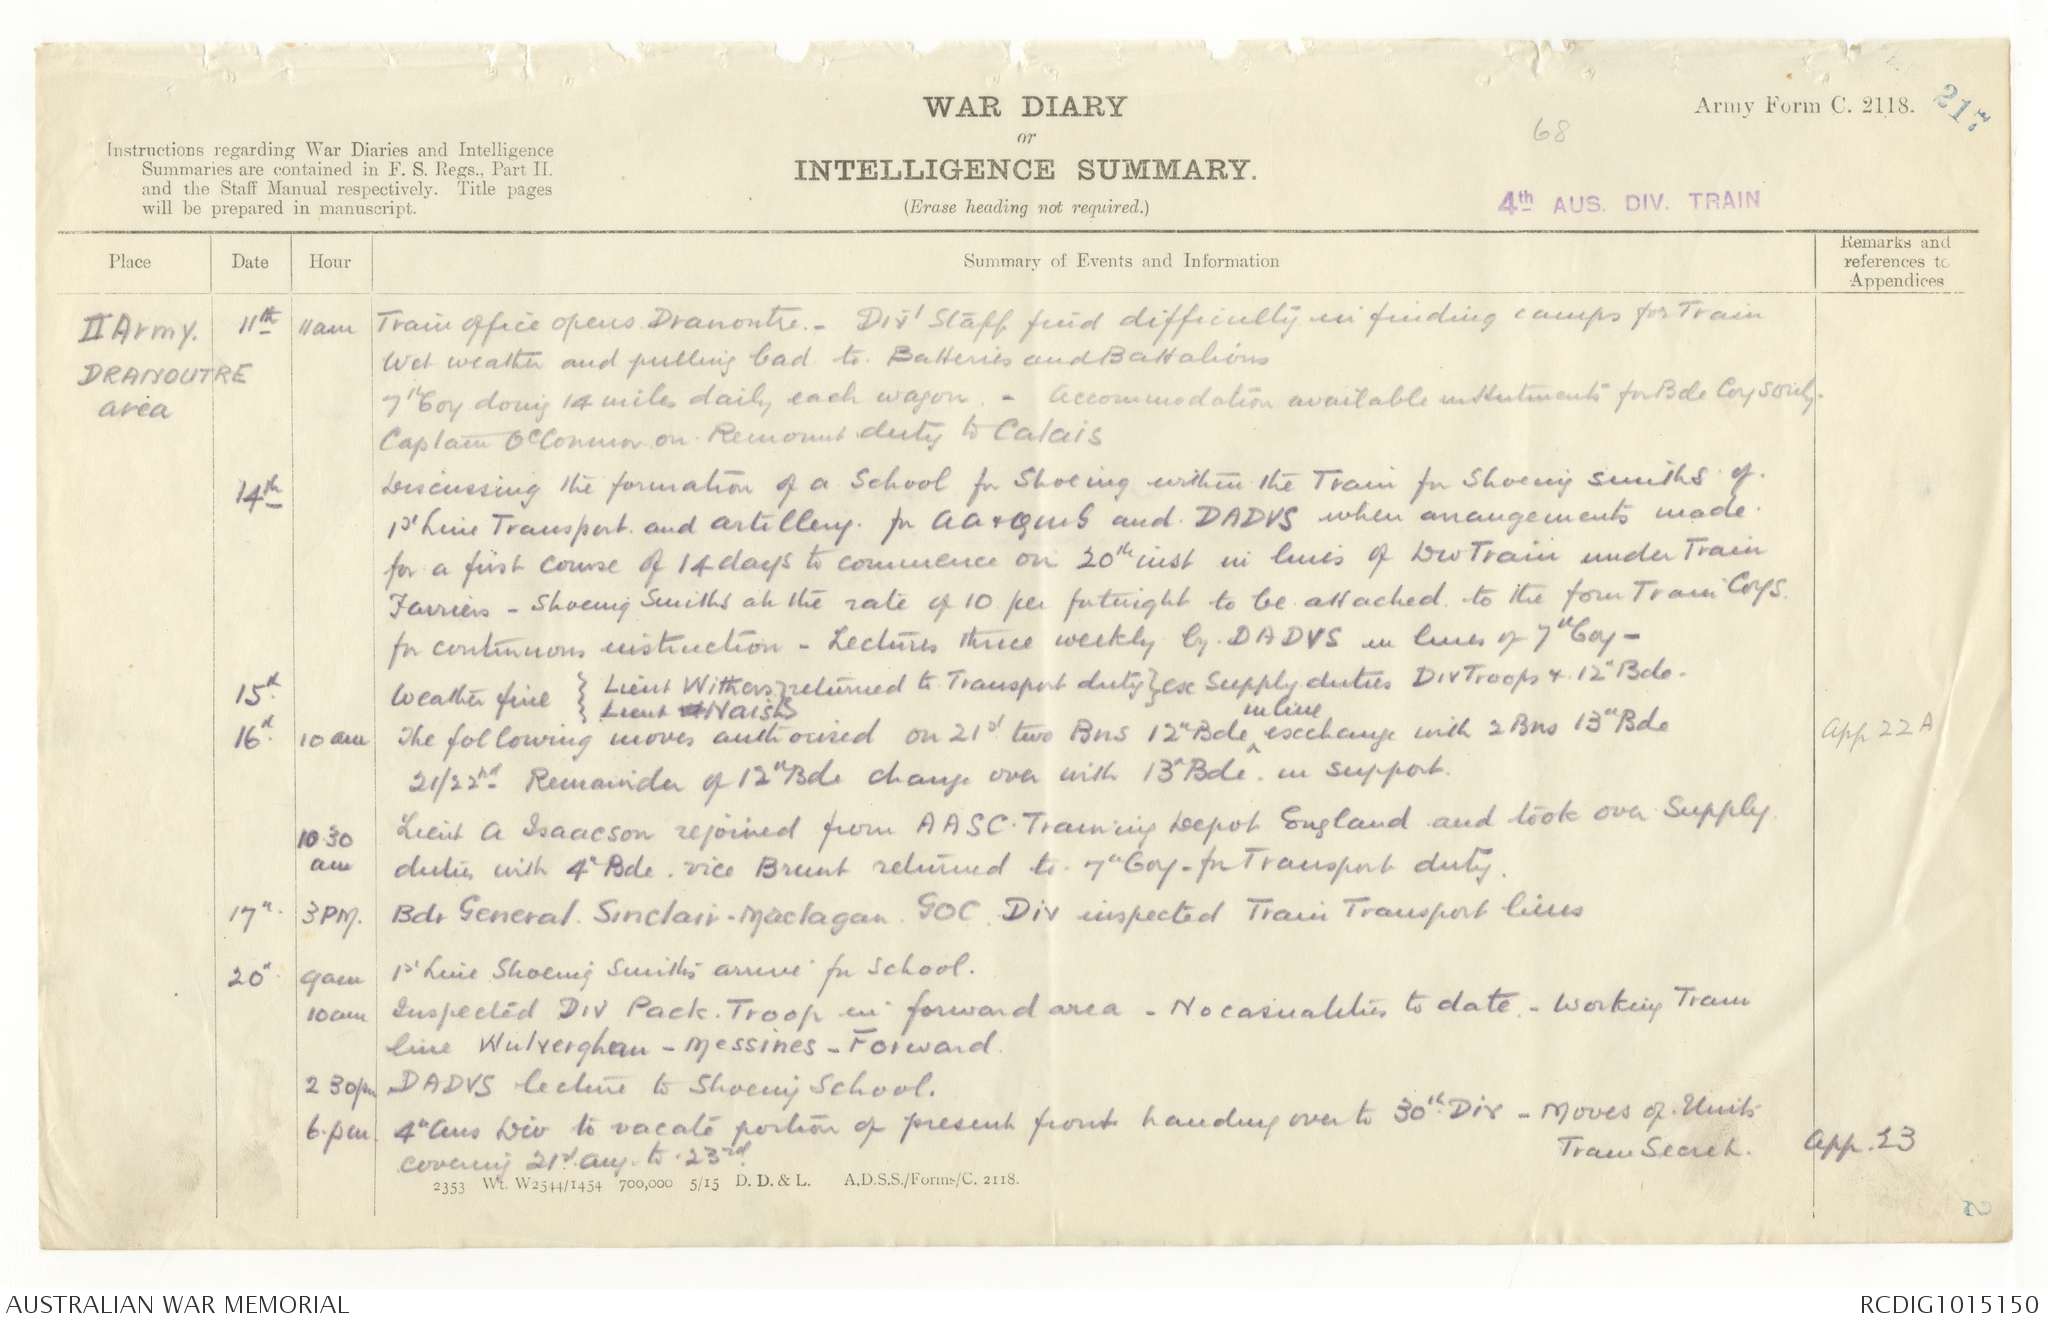 WAR DIARY
or
INTELLIGENCE SUMMARY.
(Erase heading not required.)
Army Form C. 2118.
68
Instructions regarding War Diaries and Intelligence
Summaries are contained in F. S. Regs., Part II.
and the Staff Manual respectively. Title pages
will be prepared in manuscript.
4th AUS. DIV. TRAIN
Place Date Hour Summary of Events and Information Remarks and references to Appendices
II Army. 11th 11am Train office opens Dranoutre. - Div'l Staff find difficulty in finding camps for Train
DRANOUTRE Wet weather and pulling bad to Batteries and Battalions
area 7th Coy doing 14 miles daily each wagon. - Accommodation available for Bde Coys only.
Captain O'Connor on Remount duty to Calais
14th Discussing the formation of a School for Shoeing within the Train for Shoeing Smiths of
1st Line Transport and artillery. for AA & QMG and DADVS when arrangements made
for a first course of 14 days to commence on 20th inst in lines of Div Train under Train
Farriers - Shoeing Smiths at the rate of 10 per fortnight to be attached to the four Train Coys.
for continuous instruction - Lectures thrice weekly by DADVS in lines of 7th Coy -
15th Weather fine { Lieut Withers } returned to Transport duty } ex Supply duties Div Troops & 12th Bde.
Lieut Naish
16th 10 am The following moves authorised on 21st two Bns 12th Bde in line exchange with 2 Bns 13th Bde App 22A
21/22nd Remainder of 12th Bde change over with 13th Bde. in support.
10.30 am Lieut A Isaacson rejoined from AASC. Training Depot England and took over Supply
duties with 4th Bde. vice Brunt returned to 7th Coy - for Transport duty.
17th 3 PM. Bdr General. Sinclair-Maclagan. GOC. Div inspected Train Transport lines
20th 9am 1st Line Shoeing Smiths arrive for School.
10am Inspected Div Pack. Troop in forward area - No casualties to date. - Working Tram
line Wulverghem - Messines - Forward.
2 30pm DADVS lecture to Shoeing School.
6.pm. 4th Aus Div to vacate portion of present front handing over to 30th Div - Moves of Units
covering 21st Aug. to 23rd. App. 23
2353 Wt. W2544/1454 700,000 5/15 D. D. & L. A.D.S.S./Forms/C. 2118.
AUSTRALIAN WAR MEMORIAL RCDIG1015150